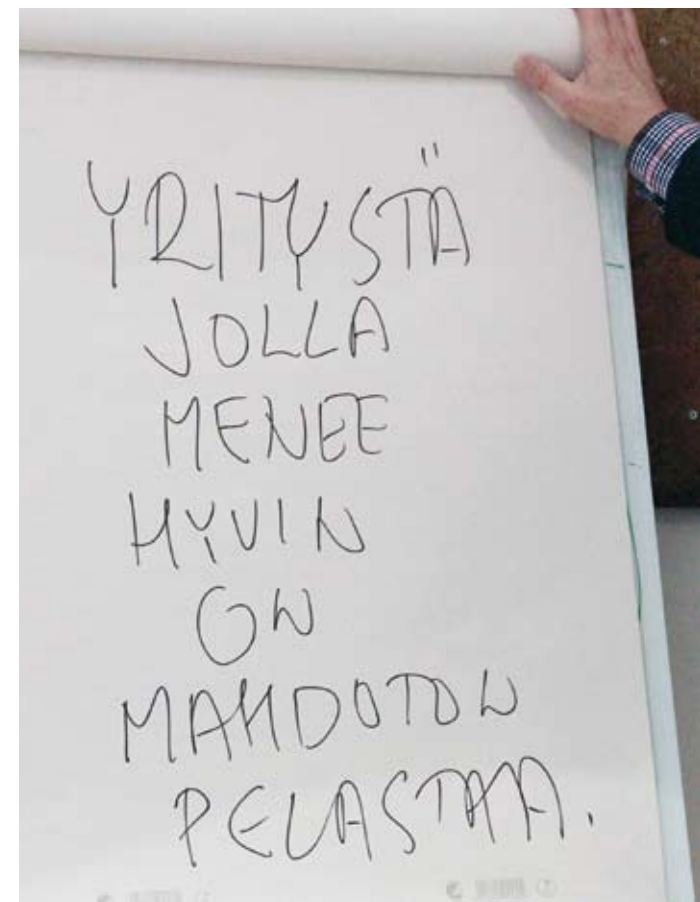 YRITYSTÄ
JOLLA
MENEE
HYVIN
ON
MAHDOTON
PELASTAA.